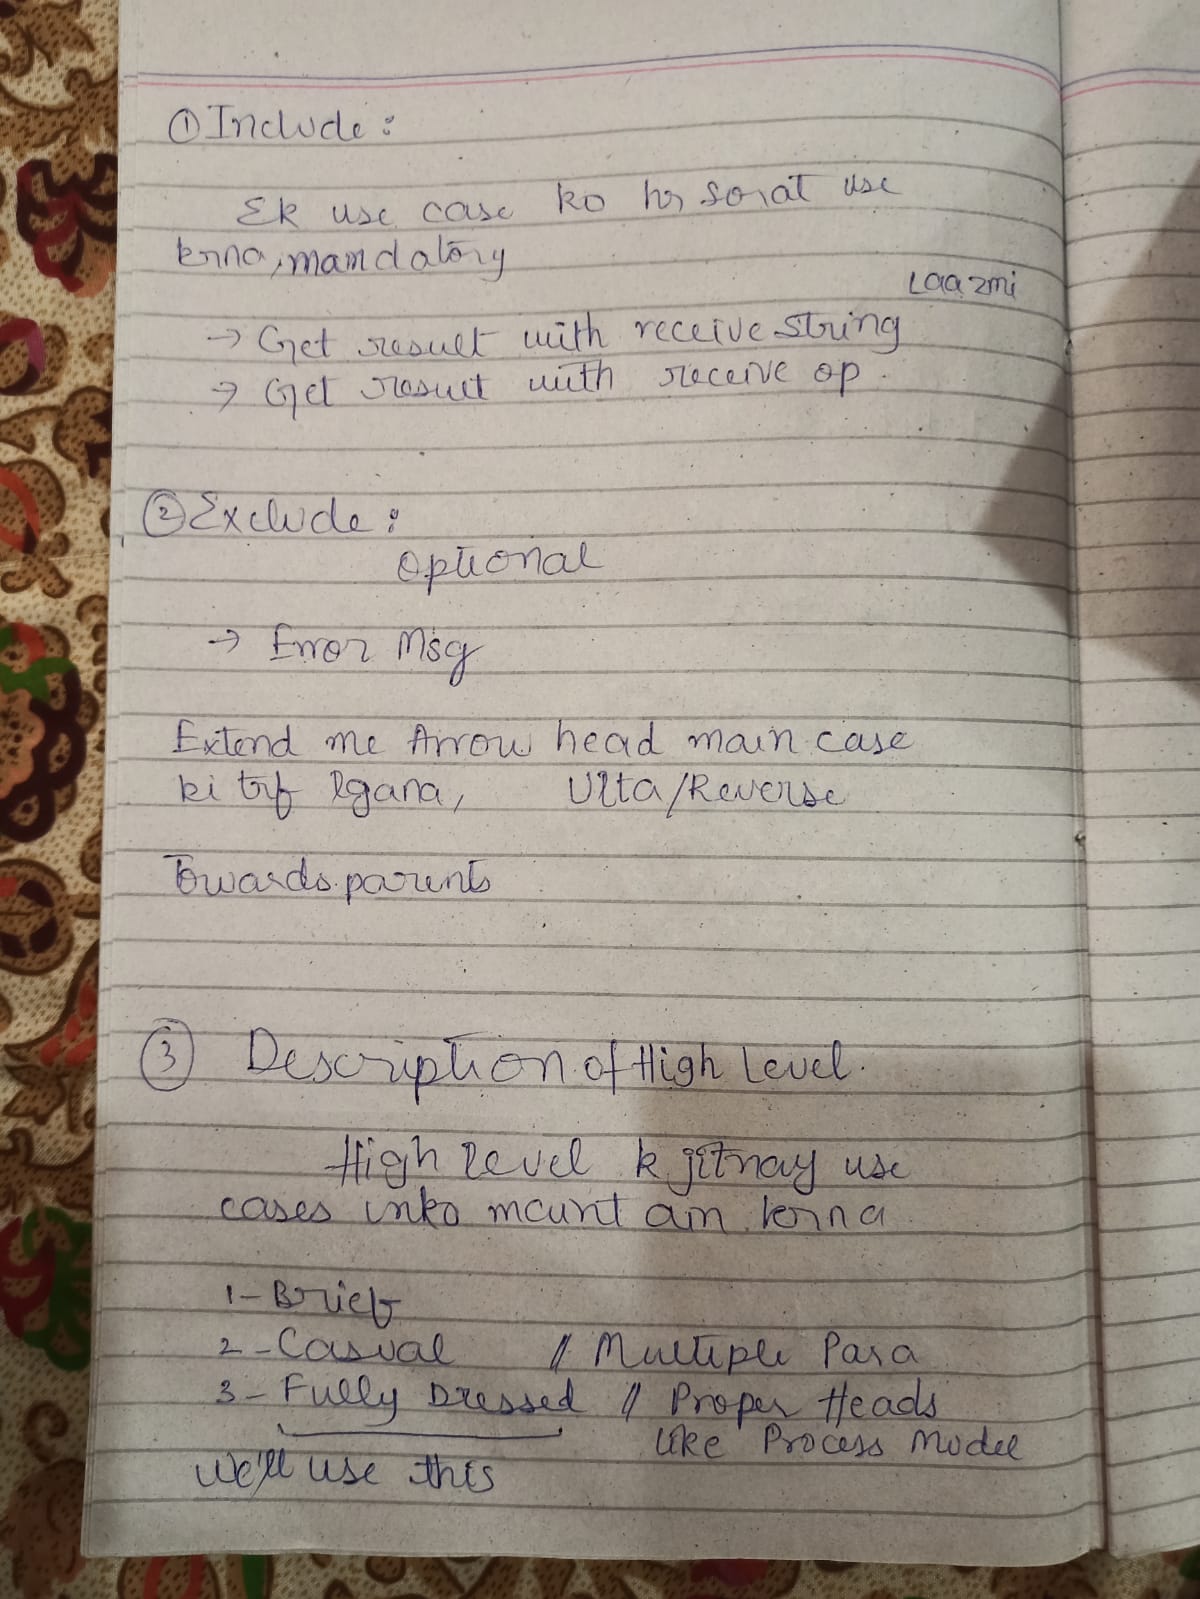 ① Include :
Ek use case ko hr sorat use
krna, mandatory
Laazmi
→ Get result with receive string
→ Get result with receive op.
② Exclude :
Optional
→ Error Msg
Extend me Arrow head main case
ki trf lgana, Ulta/Reverse
Towards parents
③ Description of High Level.
High Level k jitnay use
cases inko maintain krna
1- Brief
2- Casual // Multiple Para
3- Fully Dressed // Proper Heads
like Process Model
We'll use this